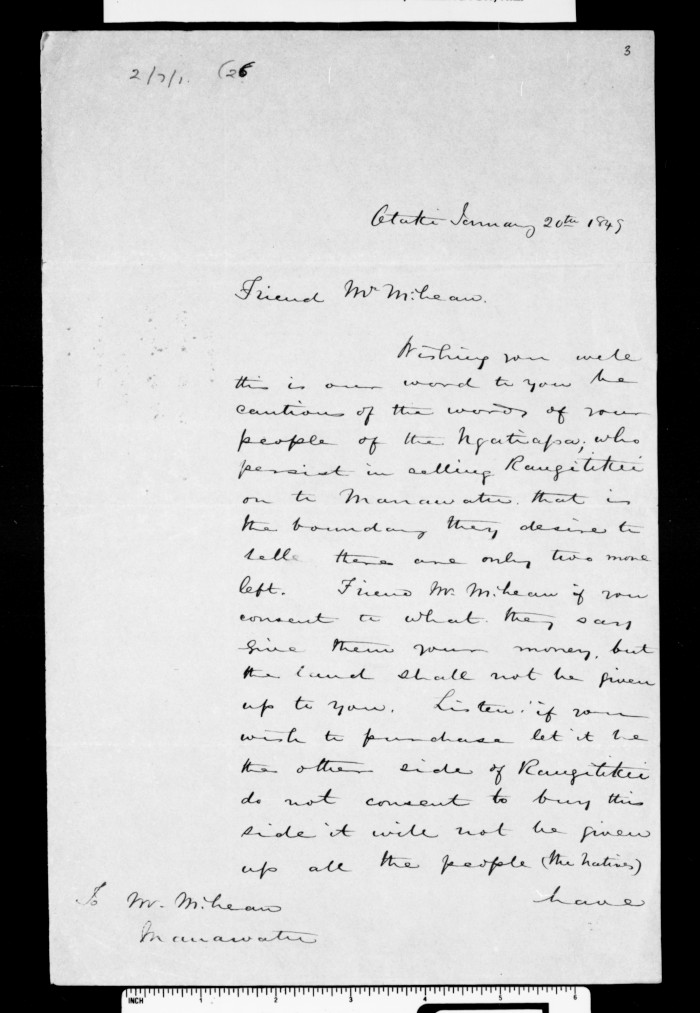 3
2/7/1. (26
Otaki January 20th 1849
Friend Mr McLean.
Wishing you well
this is our word to you be
cautious of the words of your
people of the Ngatiapa, who
persist in selling Rangitikei
on to Manawatu. that is
the boundary they desire to
sell there are only two more
left. Friend Mr McLean if you
consent to what they say
give them your money, but
the land shall not be given
up to you. Listen! if you
wish to purchase let it be
the other side of Rangitikei
do not consent to buy this
side it will not be given
up all the people (the natives)
have
To Mr. McLean
Manawatu
INCH 1 2 3 4 5 6